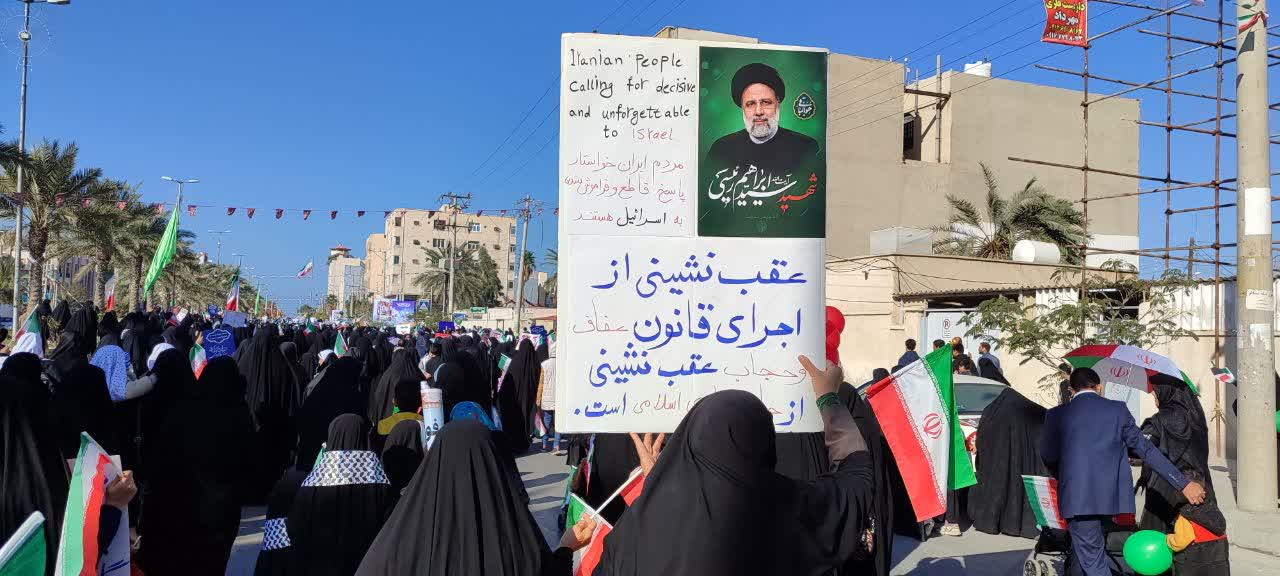 Iranian people
calling for decisive
and unforgettable
to Israel
مردم ایران خواستار
پاسخ قاطع و فراموش نشدنی
به اسرائیل هستند
شهید
آیت الله
سید ابراهیم رئیسی
عقب نشینی از
اجرای قانون عفاف
و حجاب عقب نشینی
از اسلامی است.
داربست فلزی
مهرداد